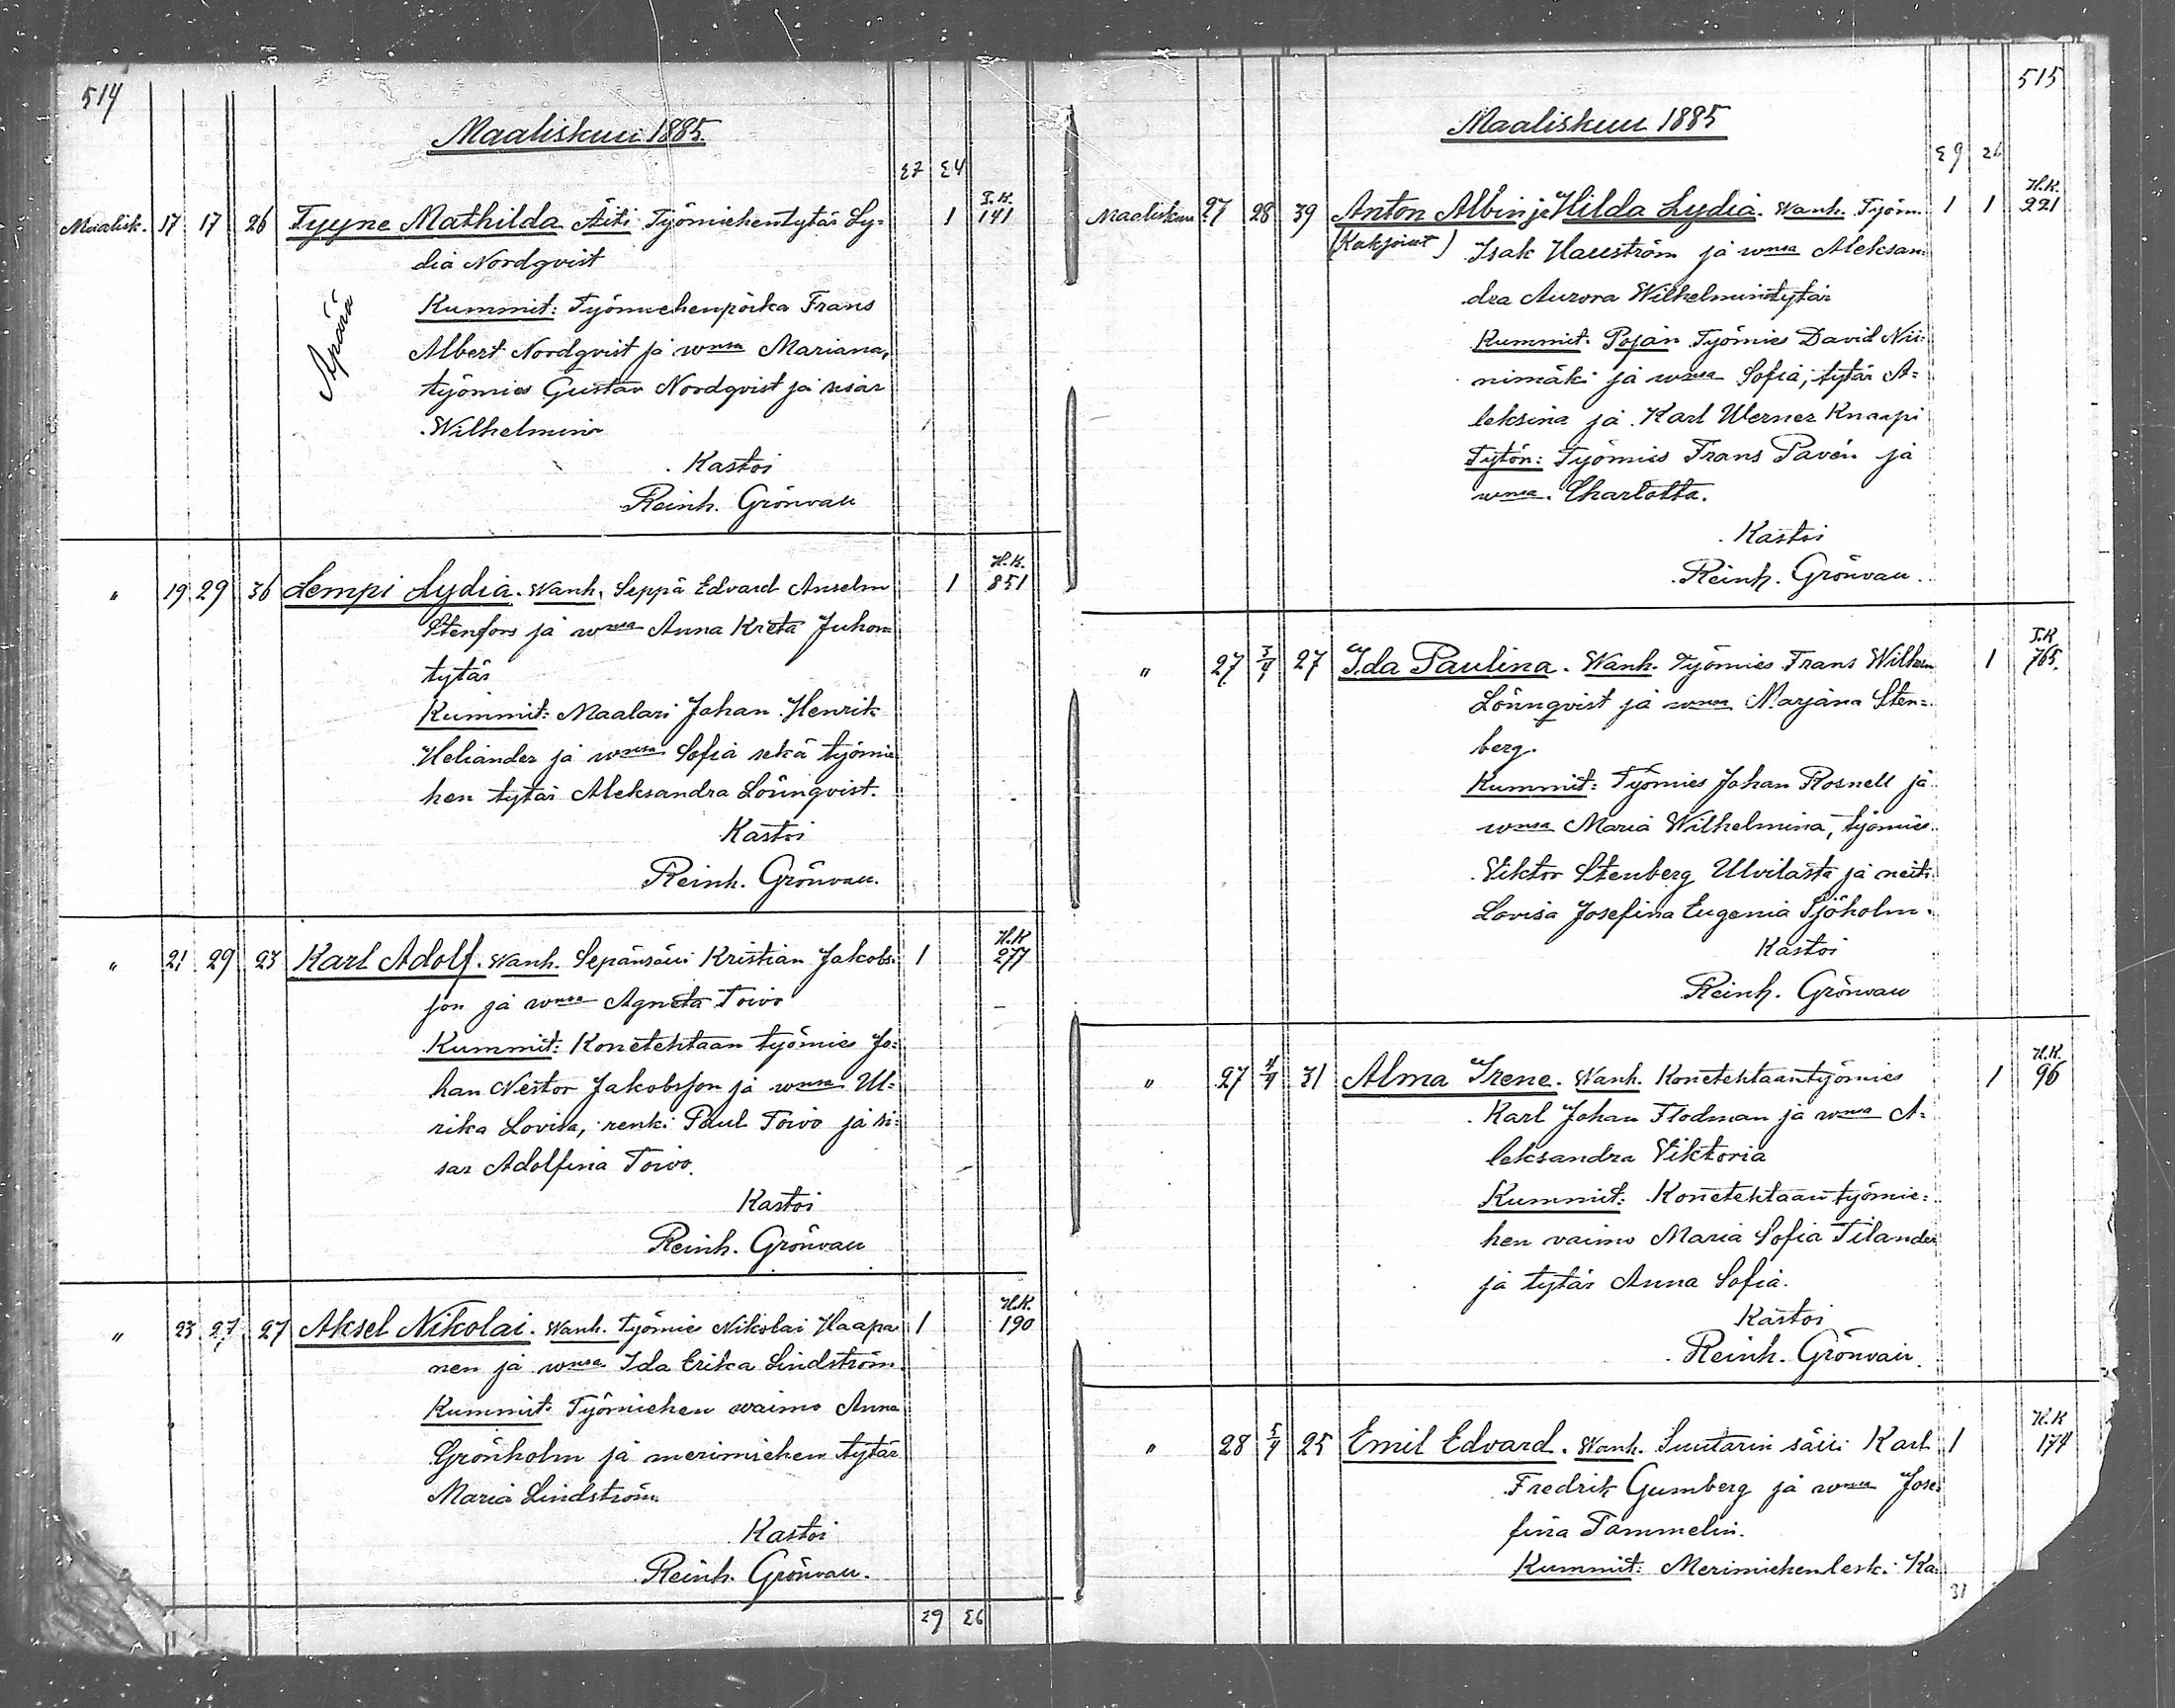 514
Maaliskuu 1885.
27 24
Maalisk. 17 17 26 Tyyne Mathilda Äiti Työmiehentytär Ly= 1 I.K. 141
dia Nordqvist
Äpärä
Kummit: Työmiehenpoika Frans
Albert Nordqvist ja wmsa Mariana,
työmies Gustav Nordqvist ja sisar
Wilhelmina
Kastoi
Reinh. Grönvall
" 19 29 36 Lempi Lydia. Wanh. Seppä Edvard Anselm 1 H.K. 851
Stenfors ja wmsa Anna Kreta Juhon
tytär
Kummit: Maalari Johan Henrik
Heliander ja wmsa Sofia sekä työmie
hen tytär Aleksandra Lönnqvist.
Kastoi
Reinh. Grönvall.
" 21 29 23 Karl Adolf. Wanh. Sepänsälli Kristian Jakobs= 1 H.K. 277
son ja wmsa Agneta Toivo
Kummit: Konetehtaan työmies Jo=
han Nestor Jakobsson ja wmsa Ul=
rika Lovisa, renki Paul Toivo ja si=
sar Adolfina Toivo.
Kastoi
Reinh. Grönvall
" 23 27 27 Aksel Nikolai. Wanh. Työmies Nikolai Haapa 1 H.K. 190
nen ja wmsa Ida Erika Lindström.
Kummit: Työmiehen waimo Anna
Grönholm ja merimiehen tytär
Maria Lindström.
Kastoi
Reinh. Grönvall.
29 26
515
Maaliskuu 1885
29 26
Maaliskuu 27 28 39 Anton Albin ja Hilda Lydia. Wanh. Työm. 1 1 H.K. 221
(Kaksoiset) Isak Hallström ja wmsa Aleksan=
dra Aurora Wilhelmintytär
Kummit: Pojan Työmies David Nii=
nimäki ja wmsa Sofia, tytär A=
leksina ja Karl Werner Knaapi
Tytön: Työmies Frans Pavén ja
wmsa. Charlotta.
Kastoi
Reinh. Grönvall.
" 27 3/4 27 Ida Paulina. Wanh. Työmies Frans Wilhem 1 I.K. 765.
Lönnqvist ja wmsa Marjana Sten=
berg.
Kummit: Työmies Johan Rosnell ja
wmsa Maria Wilhelmina, työmies
Viktor Stenberg Ulvilasta ja neiti
Lovisa Josefina Eugenia Sjöholm.
Kastoi
Reinh. Grönvall
" 27 4/4 31 Alma Irene. Wanh. Konetehtaantyömies 1 H.K. 96
Karl Johan Flodman ja wmsa A=
leksandra Viktoria
Kummit: Konetehtaan työmie=
hen vaimo Maria Sofia Tilander
ja tytär Anna Sofia.
Kastoi
Reinh. Grönvall.
" 28 5/4 25 Emil Edvard. Wanh. Suutarin sälli Karl 1 H.K. 174
Fredrik Gumberg ja wmsa Jose=
fina Tammelin.
Kummit: Merimiehenleski Ka=
31